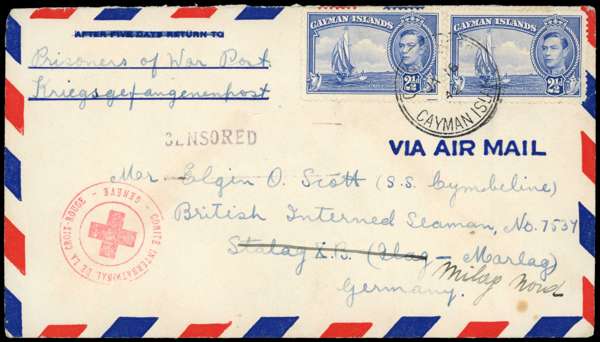 AFTER FIVE DAYS RETURN TO
Prisoners of War Post
Kriegsgefangenenpost
CAYMAN ISLANDS
2½D
CAYMAN ISLANDS
2½D
CAYMAN ISL
CENSORED
VIA AIR MAIL
Mr. Elgin O. Scott (S.S. Cymbeline)
British Interned Seaman, No. 7534
Stalag X.B. (Ilag - Marlag)
Milag Nord
Germany.
COMITÉ INTERNATIONAL DE LA CROIX-ROUGE - GENÈVE -